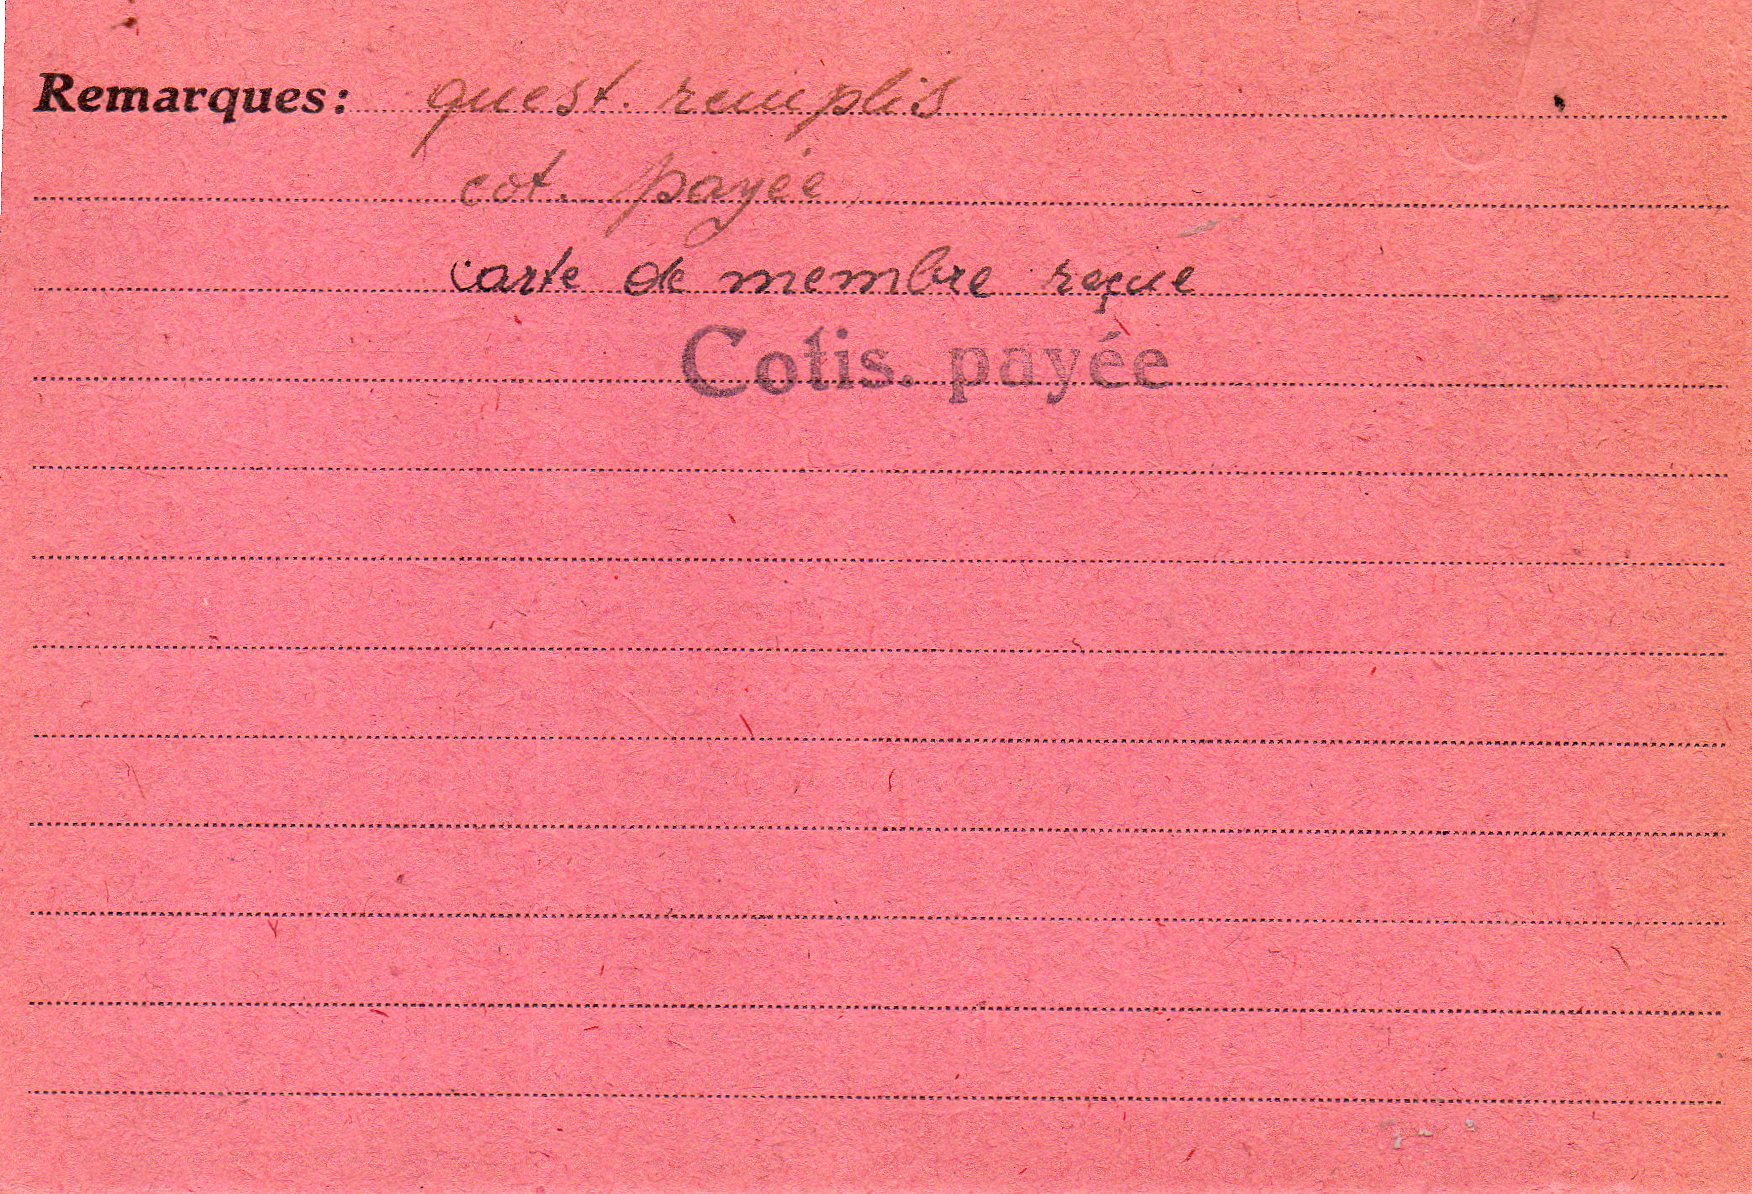 Remarques: quest. remplis
cot. payée
carte de membre reçue
Cotis. payée